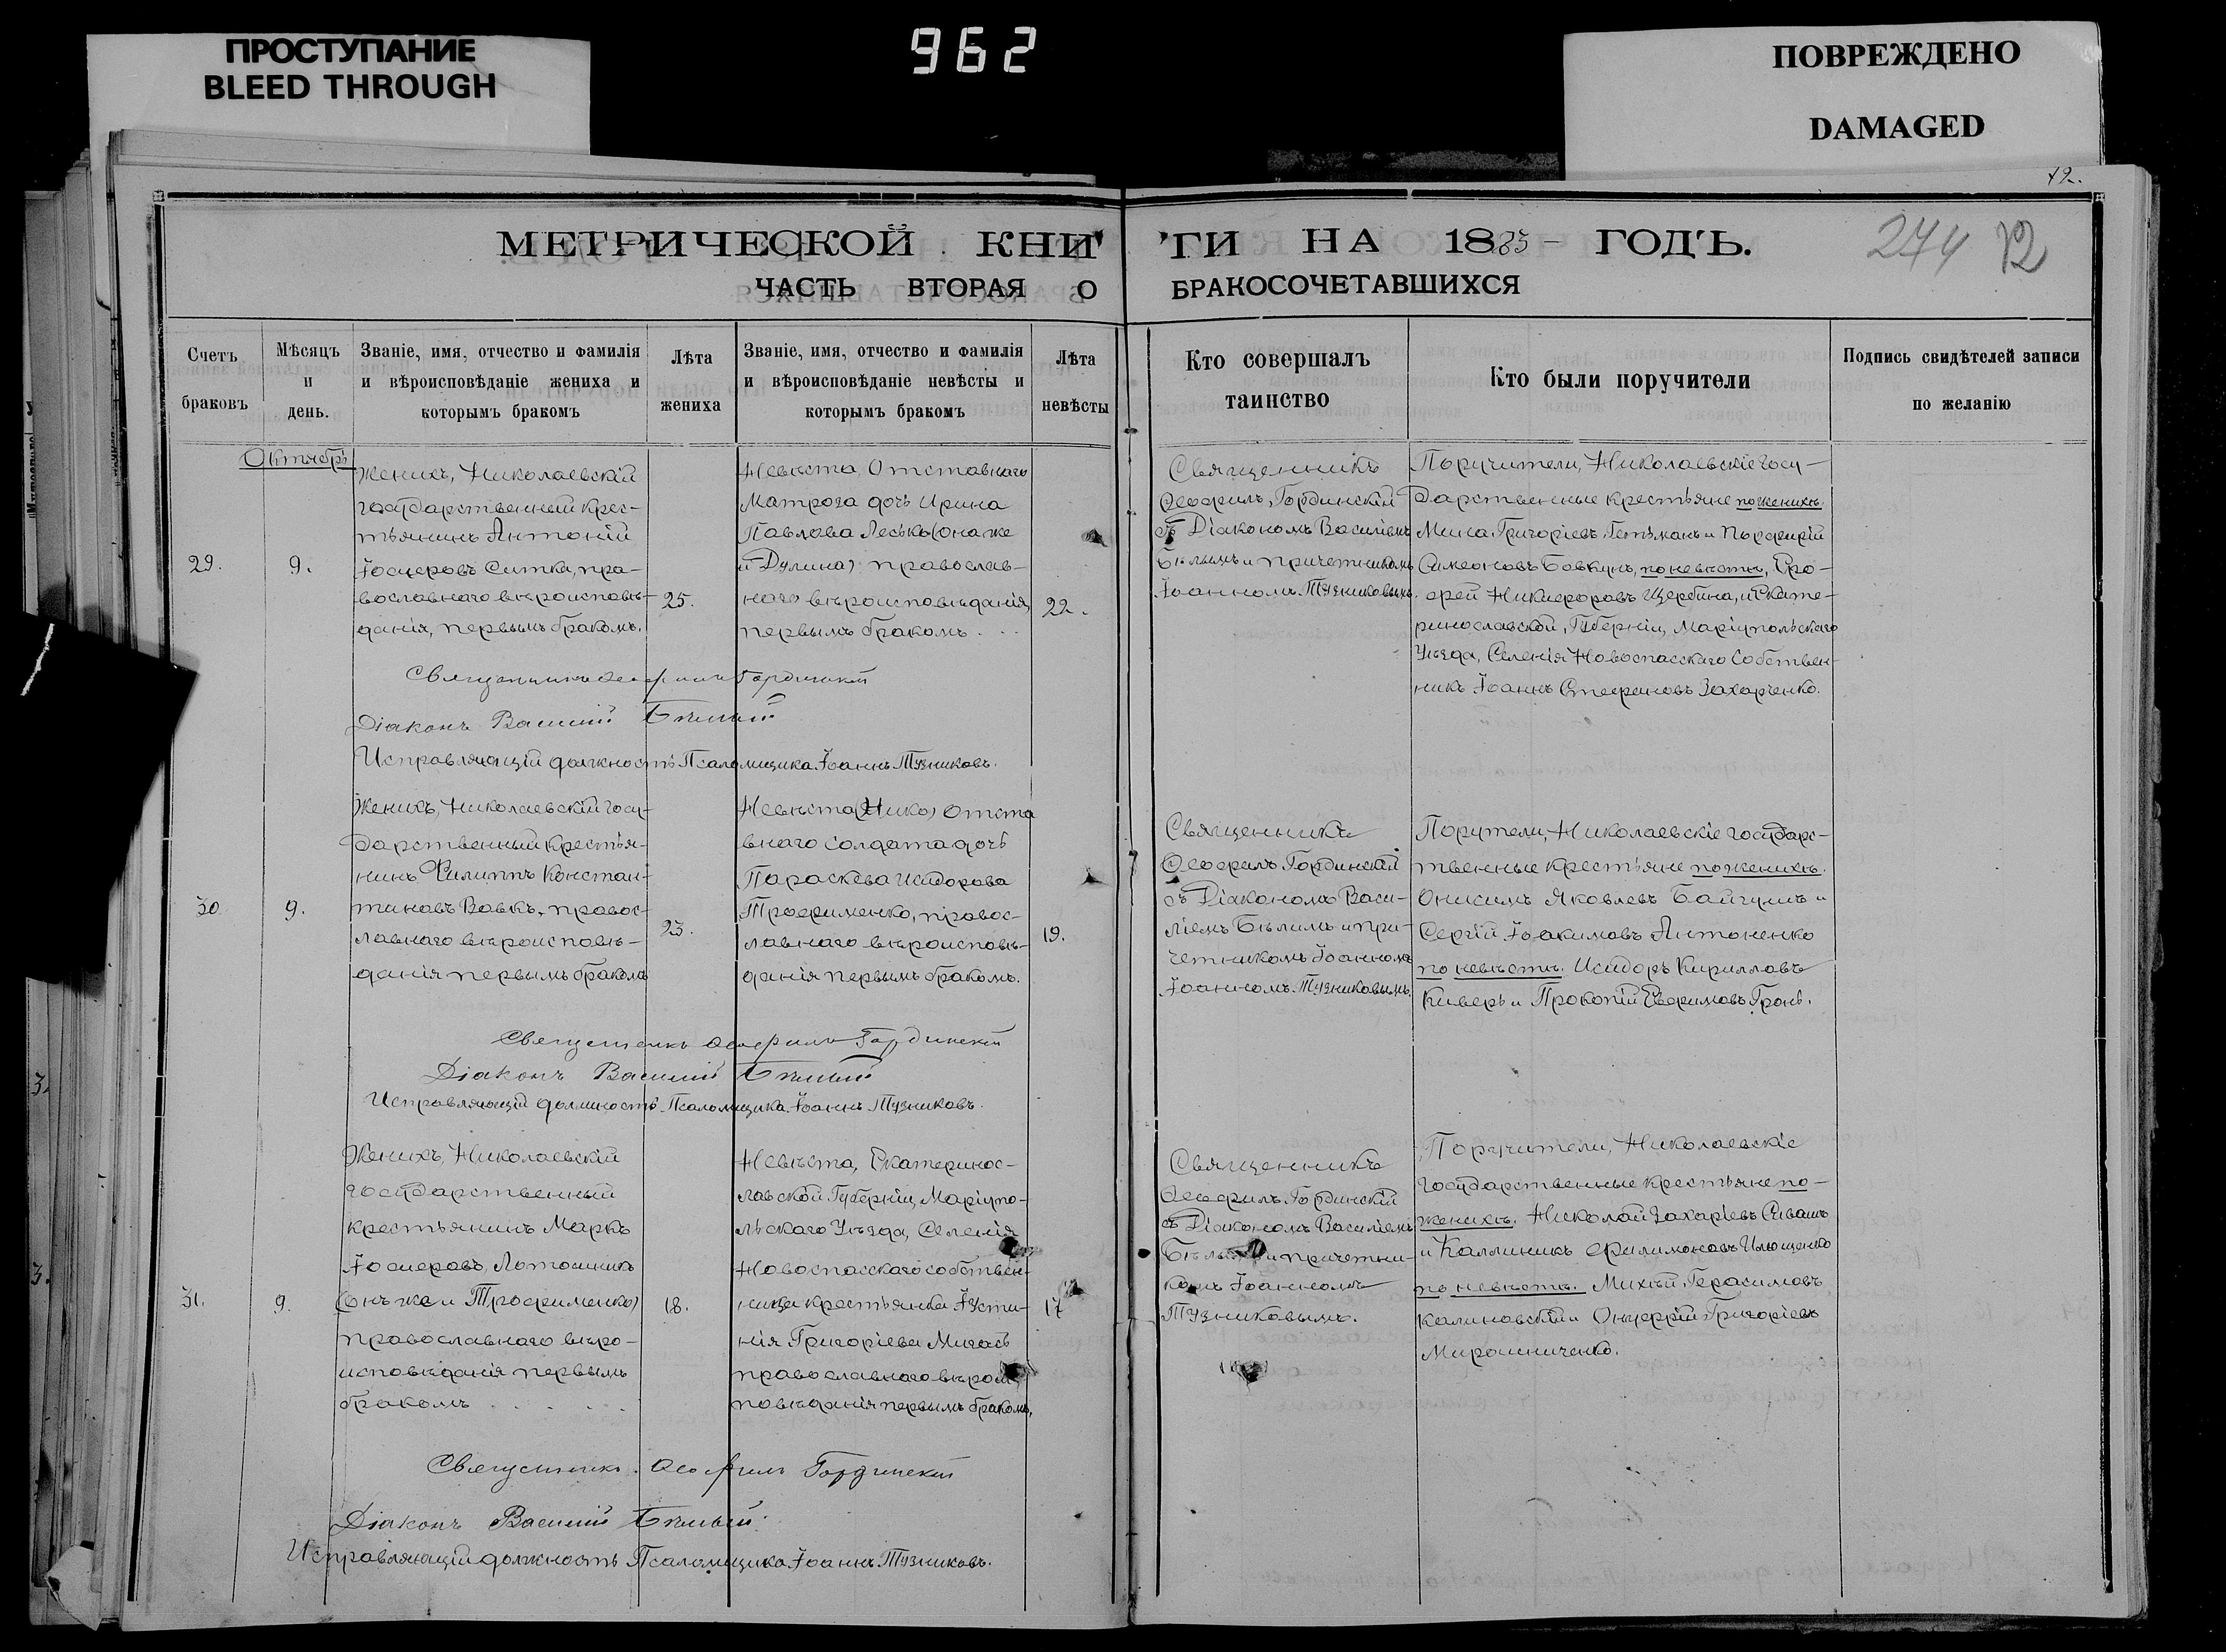 ПРОСТУПАНИЕ
BLEED THROUGH
962
ПОВРЕЖДЕНО
DAMAGED
12.
274 12
МЕТРИЧЕСКОЙ КНИ
ГИ НА 1883 ГОДЪ.
ЧАСТЬ ВТОРАЯ О
БРАКОСОЧЕТАВШИХСЯ
Счетъ
браковъ
Мѣсяцъ
и
день.
Званіе, имя, отчество и фамилія
и вѣроисповѣданіе жениха и
которымъ бракомъ
Лѣта
жениха
Званіе, имя, отчество и фамилія
и вѣроисповѣданіе невѣсты и
которымъ бракомъ
Лѣта
невѣсты
Кто совершалъ
таинство
Кто были поручители
Подпись свидѣтелей записи
по желанію
Октябрь
29.
9.
Женихъ, Николаевскій
государственный крес-
тьянинъ Антоній
Іосифовъ Ситка, пра-
вославнаго вѣроисповѣ-
данія, первымъ бракомъ.
25.
Невѣста, Отставнаго
Матроза дочь Ирина
Павлова Лесько (она же
и Дулина) православ-
наго вѣроисповѣданія,
первымъ бракомъ . . .
22.
Священникъ
Ѳеофилъ Гординскій
съ Діакономъ Василіемъ
Бѣлымъ и причетникомъ
Іоанномъ Тузниковымъ.
Поручители, Николаевскіе госу-
дарственные крестьяне по женихѣ.
Миса Григоріевъ Гетьманъ и Порфирій
Симеоновъ Бовкунъ, по невѣстѣ, Еро-
фей Никифоровъ Щербина, и Екате-
ринославской, Губерніи, Маріупольскаго
Уѣзда, Селенія Новоспасскаго Собствен-
никъ Іоаннъ Стефановъ Захарченко.
Священникъ Ѳеофилъ Гординскій
Діаконъ Василій Бѣлый
Исправляющій должность Псаломщика Іоаннъ Тузниковъ.
30
9.
Женихъ, Николаевскій госу-
дарственный крестья-
нинъ Филиппъ Констан-
тиновъ Вовкъ, правос-
лавнаго вѣроисповѣ-
данія первымъ бракомъ
23.
Невѣста (Нико) отста
внаго солдата дочь
Параскева Исидорова
Трофименко, правос-
лавнаго вѣроисповѣ-
данія первымъ бракомъ.
19.
Священникъ
Ѳеофилъ Гординскій
съ Діакономъ Васи-
ліемъ Бѣлымъ и при-
четникомъ Іоанномъ
Іоанномъ Тузниковымъ.
Поручтели, Николаевскіе государс-
твенные крестьяне по женихѣ.
Онисимъ Яковлевъ Байгушъ и
Сергій Іоакимовъ Антоненко
по невѣстѣ. Исидоръ Кирилловъ
Киверъ и Прокопій Евфимовъ Гронь.
Священникъ Ѳеофилъ Гординскій
Діаконъ Василій Бѣлый
Исправляющій должность Псаломщика Іоаннъ Тузниковъ.
31.
9.
Женихъ, Николаевскій
государственный
крестьянинъ Маркъ
Іосифовъ Лотошникъ
(онъ же и Трофименко)
православнаго вѣро-
исповѣданія первымъ
бракомъ . . . . .
18.
Невѣста, Екатеринос-
лавской Губерніи, Маріупо-
льскаго Уѣзда, Селенія
Новоспасскаго собствен-
ница крестьянка Іусти-
нія Григоріева Мигась
православнаго вѣроис
повѣданія первымъ бракомъ.
17
Священникъ
Ѳеофилъ Гординскій
съ Діакономъ Василіемъ
и причетни-
комъ Іоанномъ
Тузниковымъ.
Поручители, Николаевскіе
государственные крестьяне по-
женихѣ. Николай Захаріевъ Сивашъ
и Каллиникъ Филимоновъ Илющенко
по невѣстѣ. Михей Герасимовъ
Калиновскій и Онуфрій Григоріевъ
Мирошниченко.
Священникъ Ѳеофилъ Гординскій
Діаконъ Василій Бѣлый
Исправляющій должность Псаломщика Іоаннъ Тузниковъ.